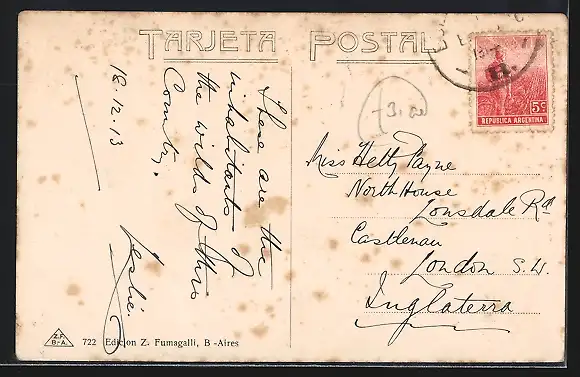 TARJETA POSTAL
18.12.13
These are the
inhabitants of
the wilds of this
Country.
Leslie.
Miss Hetty Payne
North House
Lonsdale Rd
Castlenau
London S.W.
Inglaterra
5c
REPUBLICA ARGENTINA
Z.F.
B-A.
722 Edicion Z. Fumagalli, B-Aires